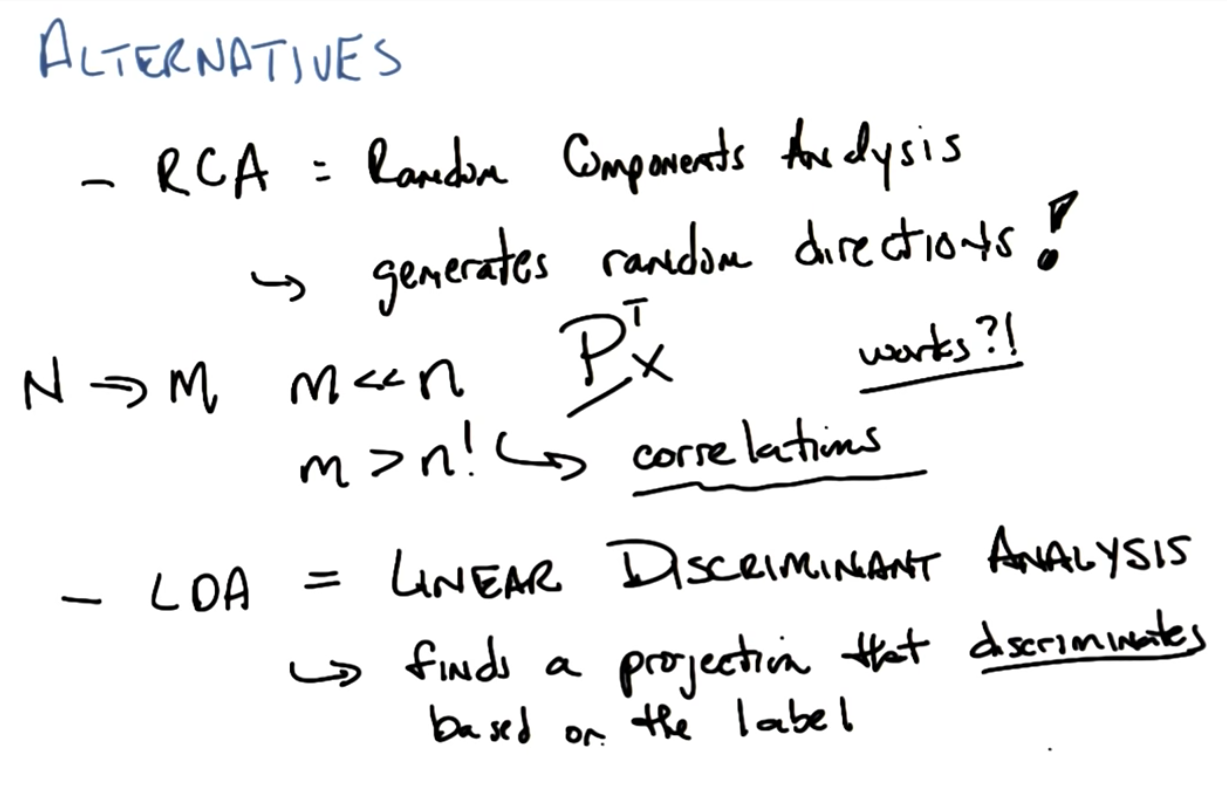 ALTERNATIVES
- RCA = Random Components Analysis
↪ generates random directions!
N ⇒ M m << n Pᵀx works?!
m > n! ↪ correlations
- LDA = LINEAR DISCRIMINANT ANALYSIS
↪ finds a projection that discriminates
based on the label